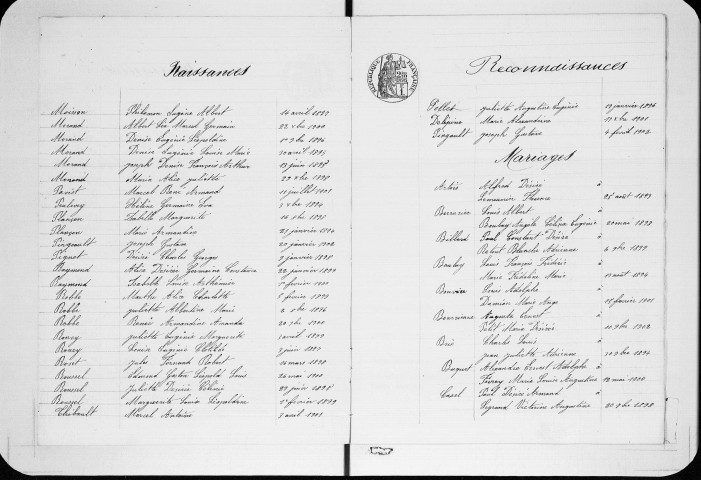 Naissances
Moisson Philemon Eugène Albert 14 avril 1899
Morand Albert Léo Marcel Germain 22 xbre 1900
Morand Denise Eugénie Léopoldine 1er 9bre 1896
Morand Denise Eugénie Louise Marie
Morand Joseph Denise François Arthur 13 juin 1898
Morand Maria Alice Juliette
Paviot Marcel René Armand 11 juillet 1901
Hélène Germaine Eva
Plançon Isabelle Marguerite 16 xbre 1898
Plançon Marie Armandine 21 janvier 1894
Pingault Joseph Gustave 20 janvier 1902
Piquet Désiré Charles Georges 2 janvier 1898
Raymond Alice Désirée Germaine 22 janvier 1899
Raymond Isabelle Louise 1er février 1901
Roblé Marthe Alice Charlotte 5 février 1893
Roblé Juliette Albertine Marie
Roblé Renée Armandine Amanda 20 xbre 1900
Ronsy Juliette Eugénie Marguerite 1 avril 1899
Ronsy Louise Eugénie Clotilde 2 juin 1901
Roset Jules Fernand Robert 16 mars 1898
Roussel Edmond Gaston Léopold Louis 26 mai 1900
Roussel Juliette Désirée Céline 29 juin 1895
Roussel Marguerite Louise Léopoldine 1er février 1899
Thibault Marcel Antoine 3 avril 1902
RÉPUBLIQUE FRANÇAISE
Reconnaissances
Pellet Juliette Augustine Eugénie 19 janvier 1896
Delépine Marie Alexandrine 12 xbre 1901
Pingault Joseph Gustave 4 février 1902
Mariages
Artois Alfred Désiré à
Florence 25 août 1893
Louis Albert à
Boulay Angèle Céline Eugénie 20 mai 1899
Billard Paul Constant Désiré à
Blanche Adrienne 4 xbre 1899
Boulay Louis François Frédéric à
Marie Fidéline Marie 18 août 1894
Bouvier Denis Adolphe à
Damien Marie Ange 15 février 1901
Auguste Ernest à
Petit Marie Désirée 10 9bre 1902
Brié Charles Louis à
Jean Juliette Adrienne 10 9bre 1894
Buquet Alexandre Ernest Adolphe à
Marie Louise Augustine 12 mai 1900
Casel Paul Désiré Armand à
Legrand Victorine Augustine 20 9bre 1898